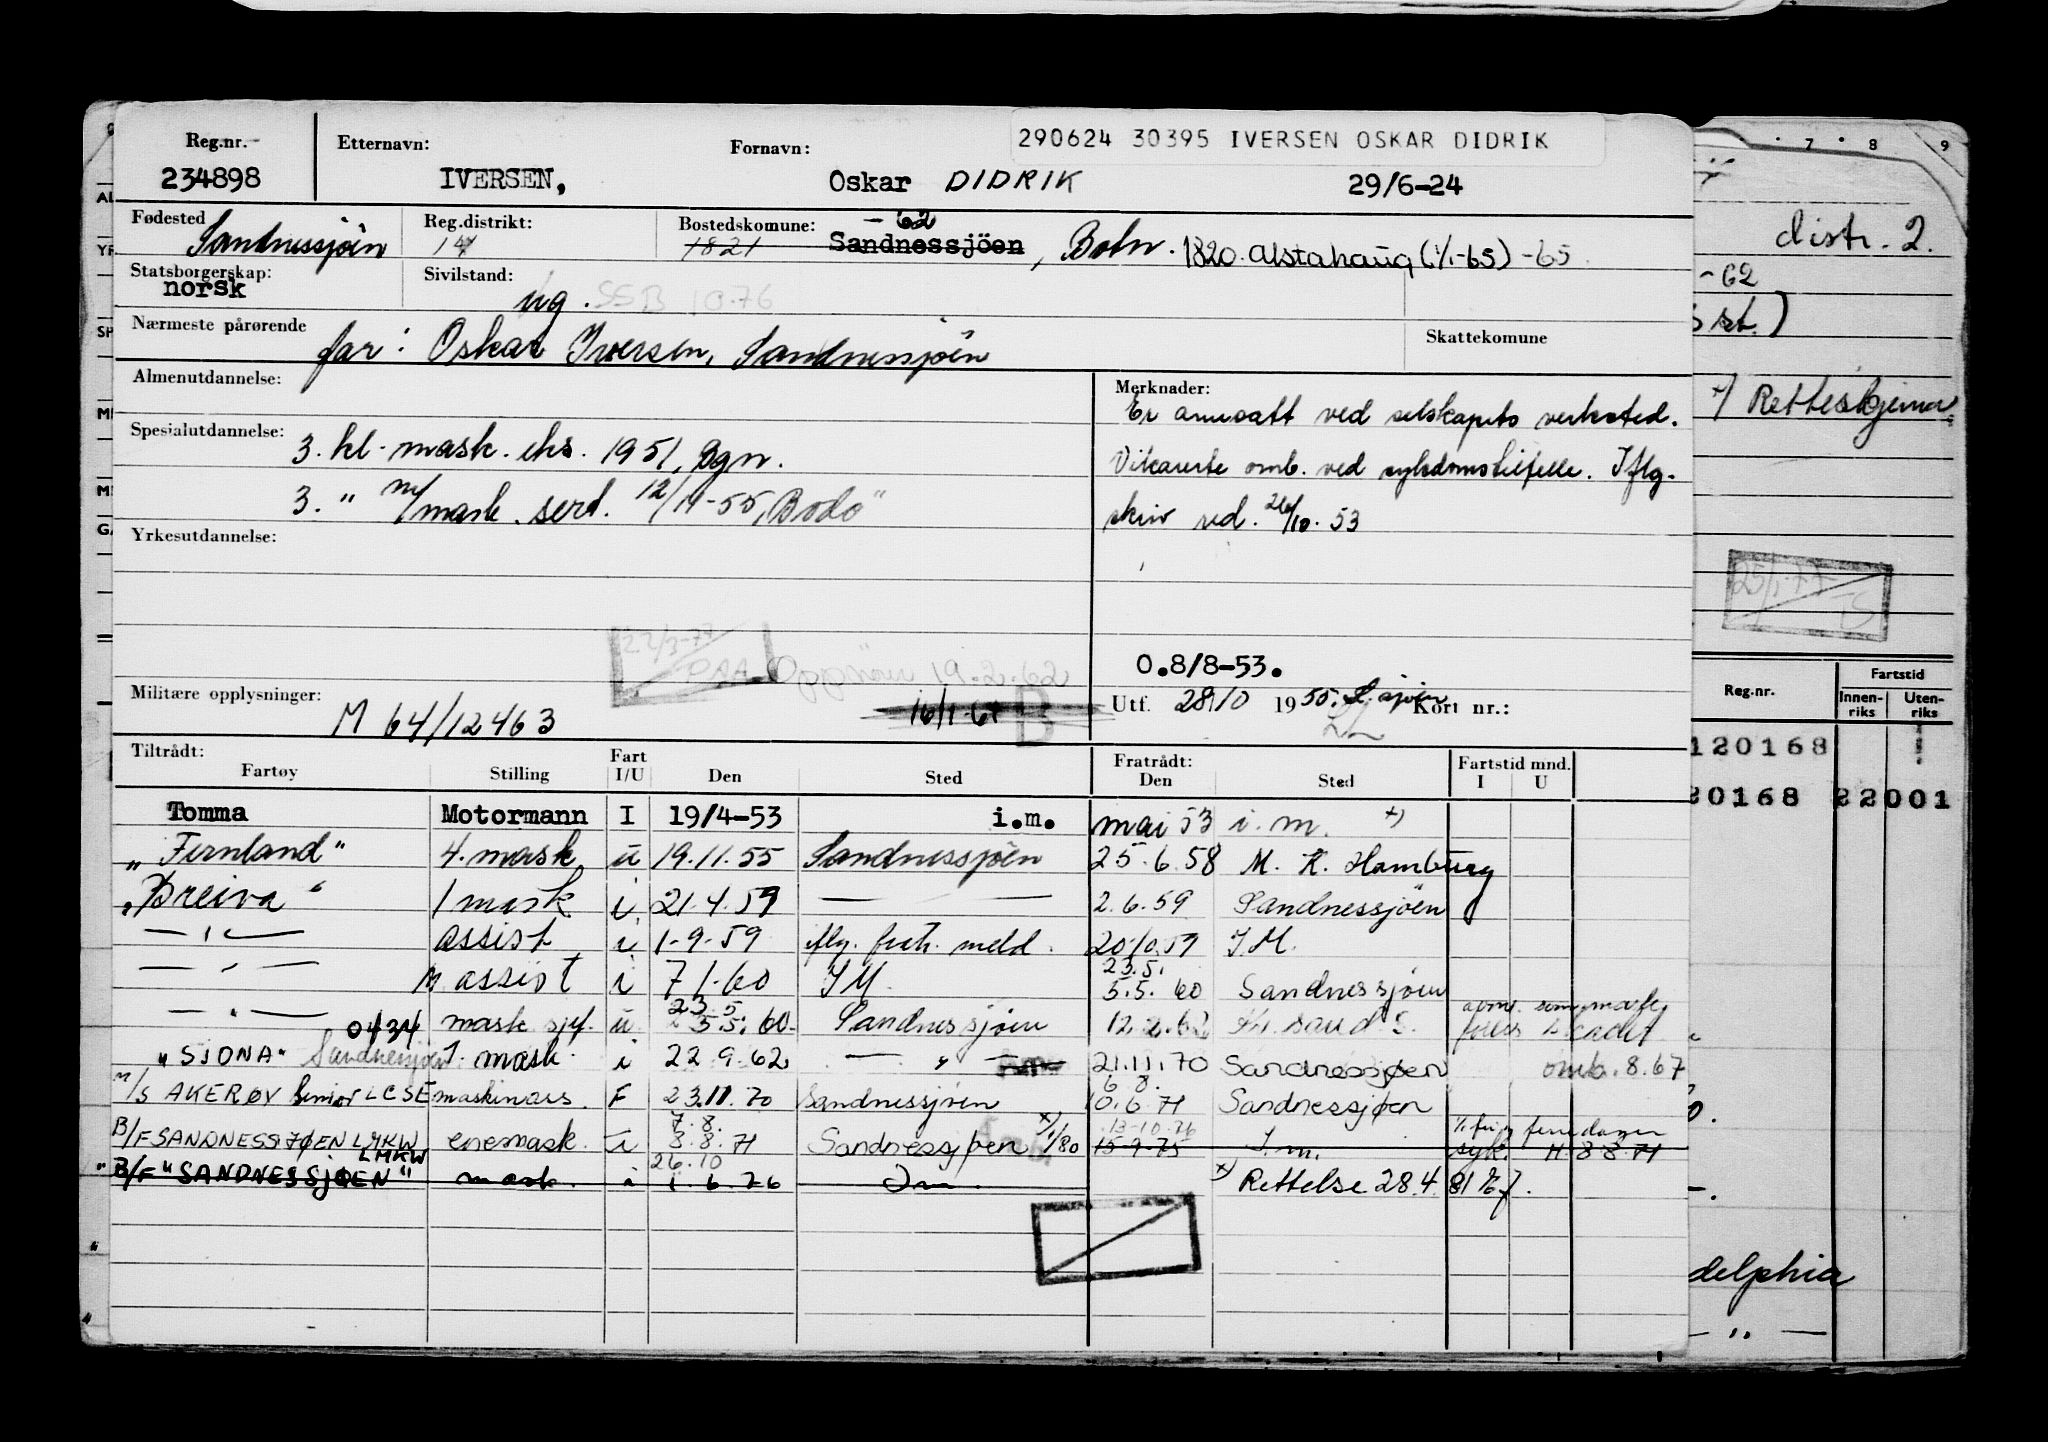 290624 30395 IVERSEN OSKAR DIDRIK
Reg.nr. Etternavn: Fornavn:
234898 IVERSEN, Oskar DIDRIK 29/6-24
Fødested Reg.distrikt: Bostedskomune: -62
Sandnessjöen 14 1821 Sandnessjöen, Boln. 1820. Alstahaug (1/1-65) -65.
Statsborgerskap: Sivilstand:
norsk ug. SSB 10.76
Nærmeste pårørende Skattekomune
far: Oskar Iversen, Sandnessjöen
Almenutdannelse: Merknader:
Er ansatt ved selskapets verksted.
Spesialutdannelse:
3. kl. mask. eks. 1951, Bgn.
Vikarierte omb. ved sykdomstilfelle. Iflg.
3. " m/mask. sert. 12/11-55, Bodø
skriv ved. 26/10. 53
Yrkesutdannelse:
22/3-77
19.2.62
O.8/8-53.
Militære opplysninger: Utf. 28/10 1955. S.sjöen Kort nr.:
M 64/12463 16/1-64 B
Tiltrådt: Fart Fratrådt: Fartstid mnd.
Fartøy Stilling I/U Den Sted Den Sted I U
Tomma Motormann I 19/4-53 i.m. mai 53 i.m. x)
"Fernland" 4. mask. u 19.11.55 Sandnessjöen 25.6.58 M. K. Hamburg
"Breiva" 1 mask i. 21.4.59 — — 2.6.59 Sandnessjöen
— " — assist i 1-9-59 iflg. fratr. meld. 20/10.59 I.M.
23.5.
— " — M assist i 7 1.60 IM. 5.5. 60 Sandnessjøen
23.5
— " — 0434 mask sjef. u. 5.5. 60. Sandnessjøen 12.2.62 Kr. sand S.
"SJONA" Sandnessjøen 1. mask. i 22 9.62 — " — 21.11.70 Sandnessjøen omb. 8.67
6 8.
M/S AKERØY Senior LCSE maskinass. F 23.11.70 Sandnessjøen 10.6.71 Sandnessjøen
7.8. 13-10-76
B/F SANDNESSJØEN LMKW enemask. i 8.8.71 Sandnessjøen x) 1/80 15-9.75 I.m. syk. H 8 8.71
LMKW 26.10
"B/F "SANDNESSJØEN" mask. i 1.6.76 Im. x) Rettelse 28.4.81
7 8 9
distr. 2.
-62
st.)
x) Rettes
25/1-77
Fartstid
Reg.nr. Innen- Uten-
riks riks
120168
20168 22001
delphia
— " —